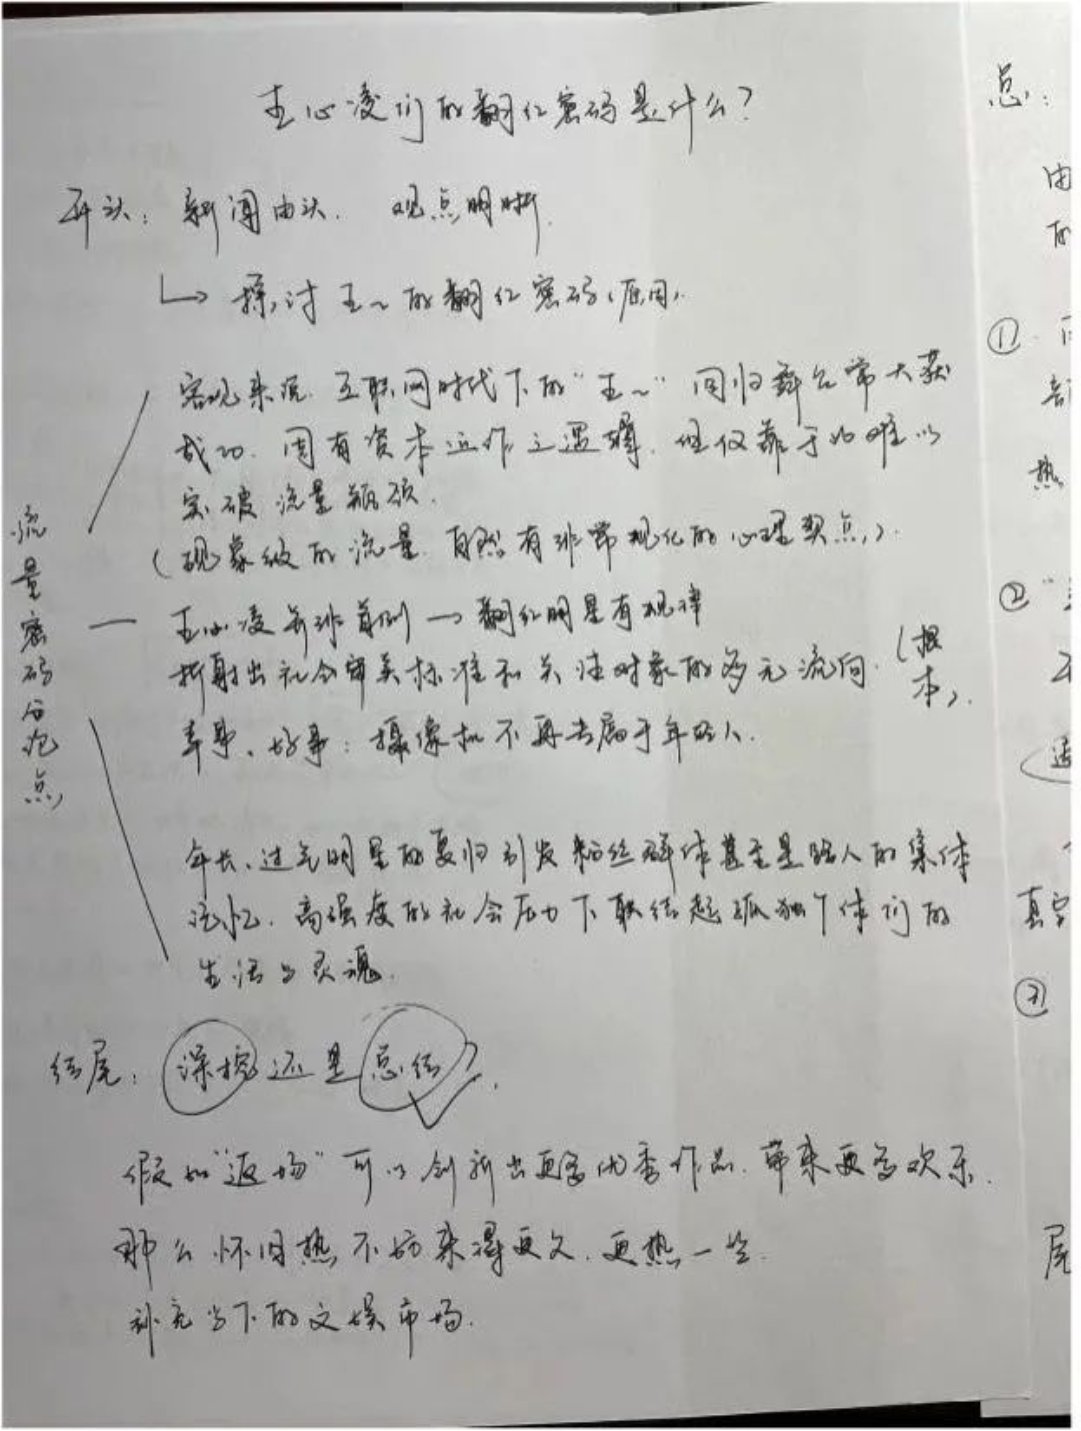 王心凌们的翻红密码是什么?
开头: 新闻由头. 观点明晰.
探讨王~的翻红密码(原因).
客观来说. 互联网时代下的"王~"回归舞台常大获
成功. 固有资本运作之逻辑. 但仅靠于此难以
突破流量瓶颈.
(现象级的流量. 自然有非常规化的心理契点).
王心凌并非首例 → 翻红明星有规律
折射出社会审美标准和关注对象的多元流向. (根本).
幸事、好事: 摄像机不再专属于年轻人.
年长、过气明星的复归引发粉丝群体甚至是路人的集体
记忆. 高强度的社会压力下联结起孤独个体们的
生活与灵魂.
流量密码分论点
结尾: 深挖还是总结?
假如"返场"可以创新出更多优秀作品. 带来更多欢乐.
那么怀旧热不妨来得更久. 更热一些.
补充当下的文娱市场.
总:
由
的
①
热
②
真字
③
尾